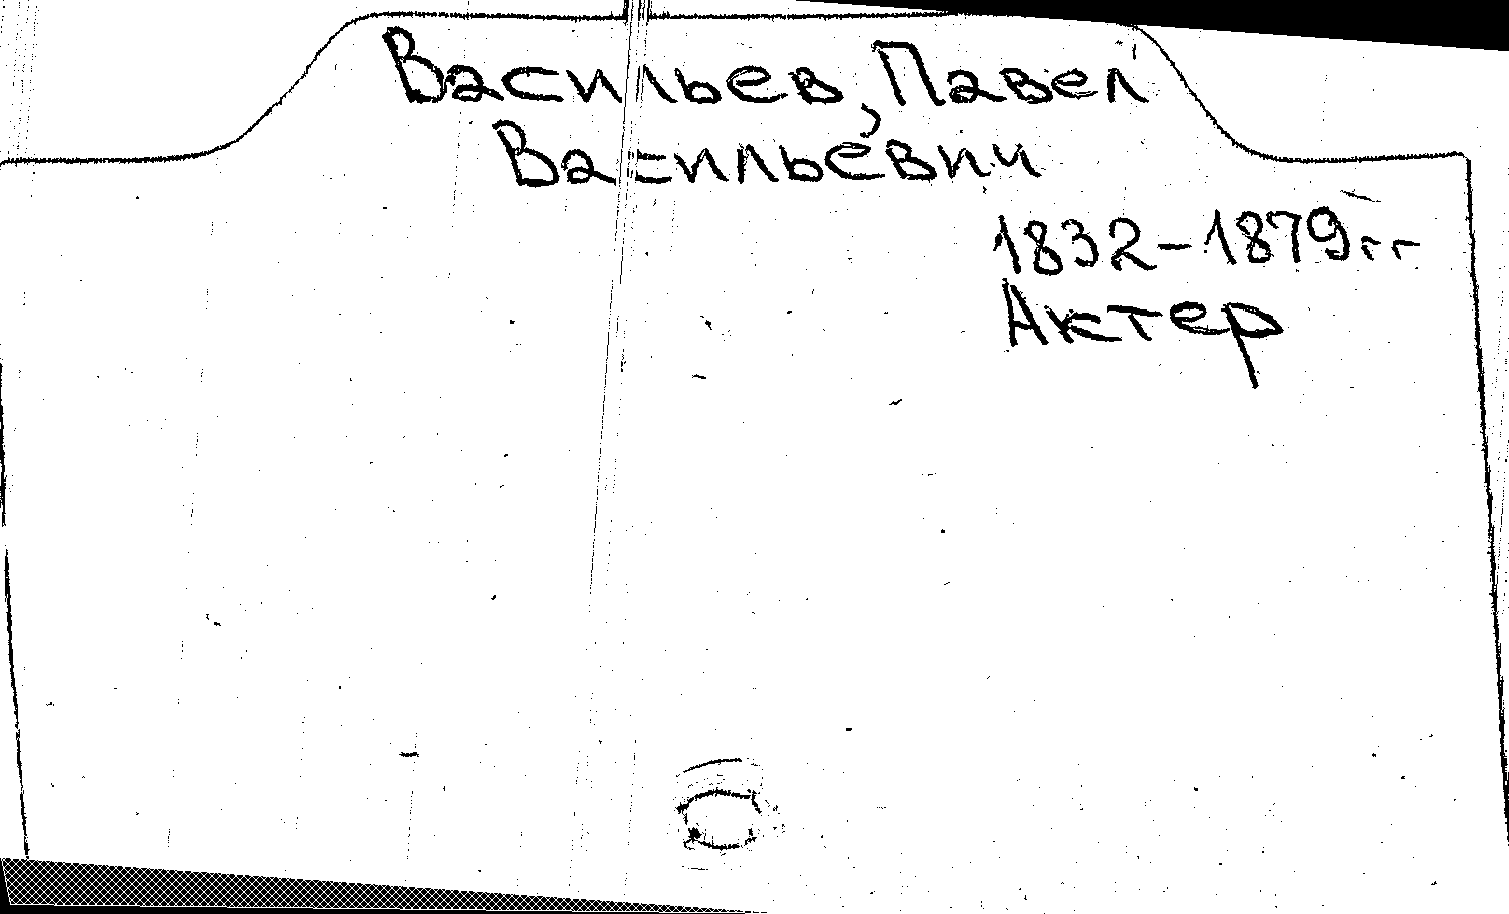 Васильев, Павел
Васильевич
1832-1879гг
Актер